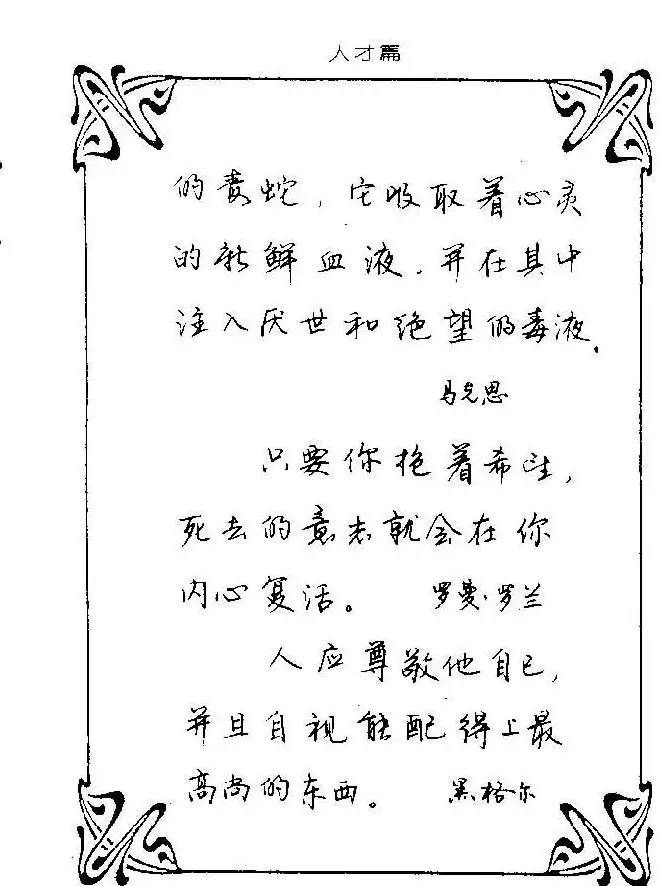 人才篇
的毒蛇，它吸取着心灵
的新鲜血液，并在其中
注入厌世和绝望的毒液。
马克思
只要你抱着希望，
死去的意志就会在你
内心复活。 罗曼·罗兰
人应尊敬他自己，
并且自视能配得上最
高尚的东西。 黑格尔